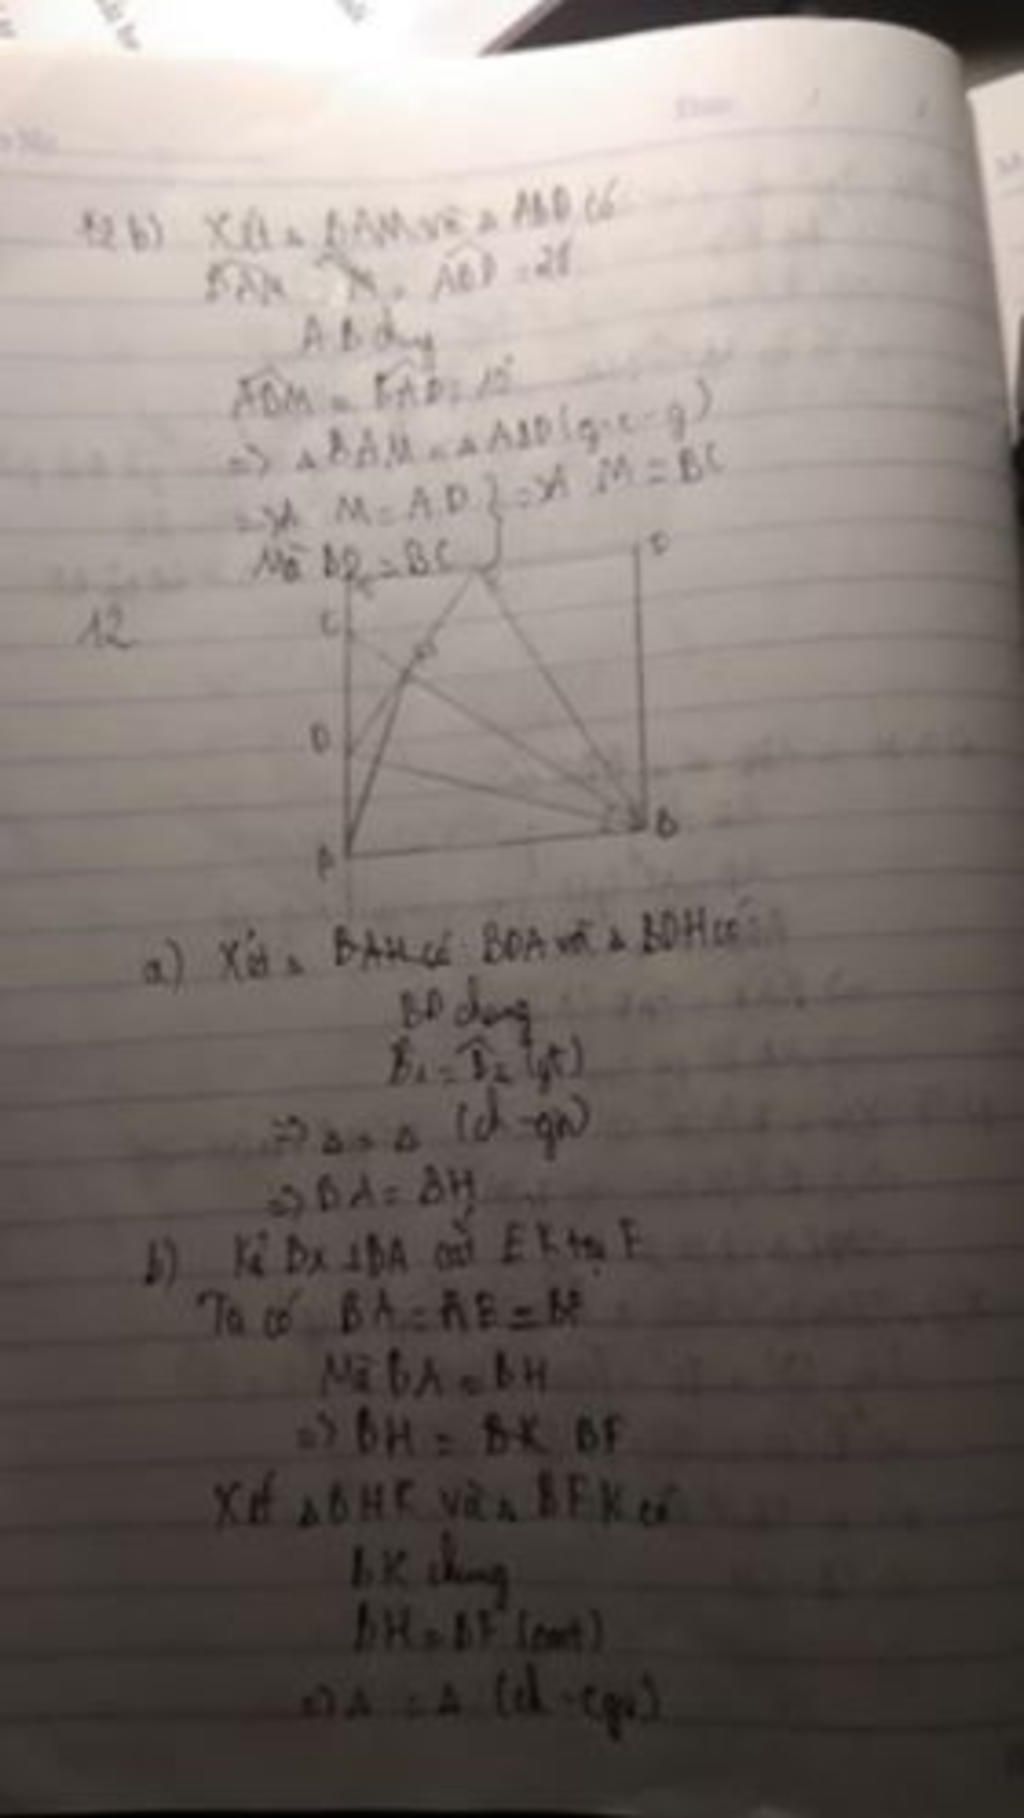 b) Xét Δ BAM và Δ ABD có
BAM = ABD = 20
AB chung
ABM = BAD = 10°
=> Δ BAM = Δ ABD (g-c-g)
=> AM = AD } => AM = BC
Mà = BC
12
C
D
D
A
B
a) Xét Δ BAH có BDA và Δ BDH có
BD chung
B1 = B2 (gt)
=> Δ = Δ (ch-gn)
=> BA = BH
b) Kẻ Bx ⊥ BA cắt EK tại F
Ta có BA = AE = BF
Mà BA = BH
=> BH = BK BF
Xét Δ BHK và Δ BFK có
BK chung
BH = BF (cmt)
=> Δ = Δ (ch-cgv)